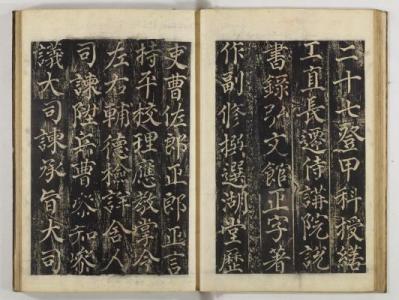 二十七登甲科授繕
工直長遷侍講院説
書録弘文館正字著
作副修撰選湖堂歷
吏曹佐郎正郎正言
持平校理應教掌令
左右輔德檢詳舍人
司諫陞兵曹叅知叅
議大司諫承旨大司